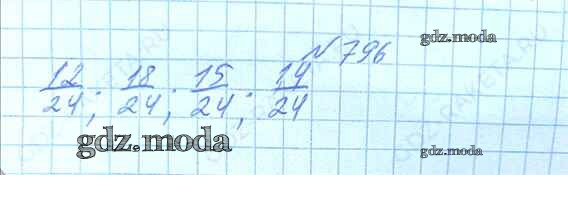 № 796
12/24; 18/24; 15/24; 14/24
gdz.moda
gdz.moda
gdz.moda